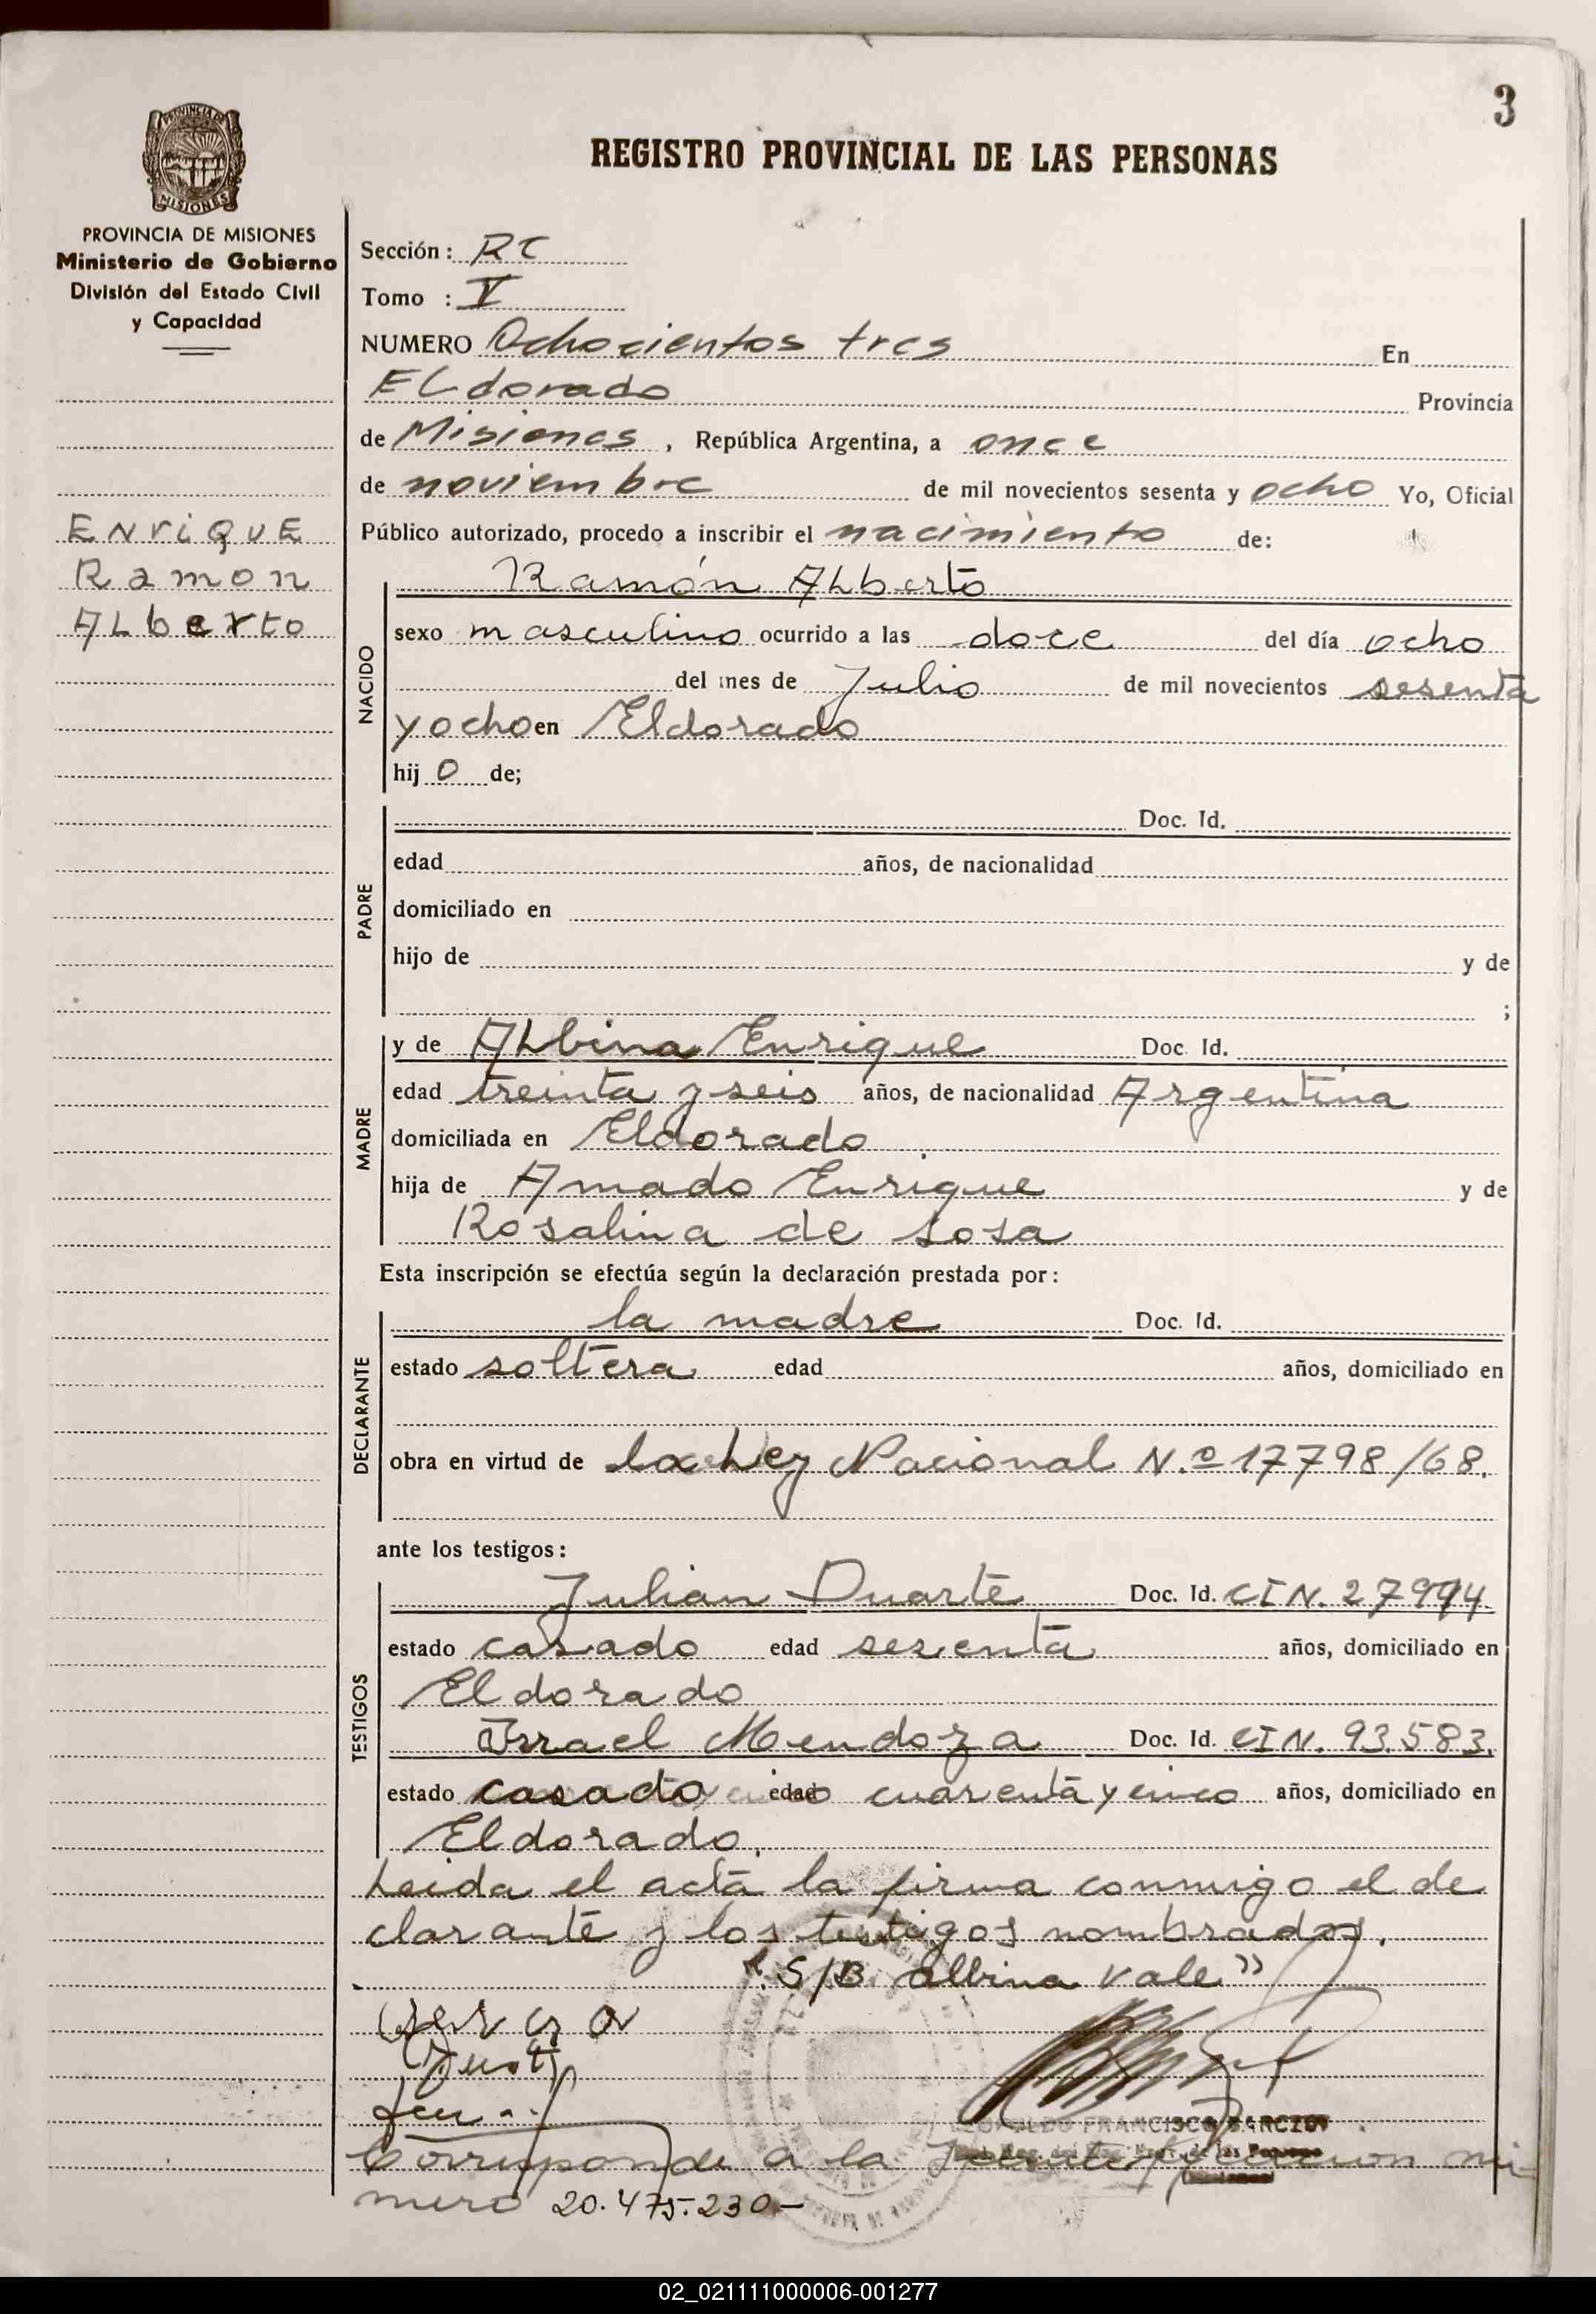 3
REGISTRO PROVINCIAL DE LAS PERSONAS
PROVINCIA DE MISIONES
MISIONES
PROVINCIA DE MISIONES
Ministerio de Gobierno
División del Estado Civil
y Capacidad
ENriQUE
Ramon
ALberto
Sección: RC
Tomo : V
NUMERO Ochocientos tres En
ELdorado Provincia
de Misiones, República Argentina, a once
de noviembre de mil novecientos sesenta y ocho Yo, Oficial
Público autorizado, procedo a inscribir el nacimiento de:
NACIDO
Ramón ALberto
sexo masculino ocurrido a las doce del día ocho
del mes de Julio de mil novecientos sesenta
y ocho en Eldorado
hij o de;
PADRE
Doc. Id.
edad años, de nacionalidad
domiciliado en
hijo de y de
;
MADRE
y de ALbina Enrique Doc. Id.
edad treinta y seis años, de nacionalidad Argentina
domiciliada en Eldorado
hija de Amado Enrique y de
Rosalina de sosa
Esta inscripción se efectúa según la declaración prestada por:
DECLARANTE
la madre Doc. Id.
estado soltera edad años, domiciliado en
obra en virtud de la Ley Nacional N.º 17798/68.
ante los testigos:
TESTIGOS
Julian Duarte Doc. Id. CI N.
estado casado edad sesenta años, domiciliado en
Eldorado
Israel Mendoza Doc. Id. CI N. 93.583.
estado casado edad cuarenta y cinco años, domiciliado en
Eldorado.
Leida el acta la firma conmigo el de
clarante y los testigos nombrados.
"S/B albina Vale"
LEOPOLDO FRANCISCO
Corresponde a la Identificacion nú
mero 20.475.230-
02_021111000006-001277